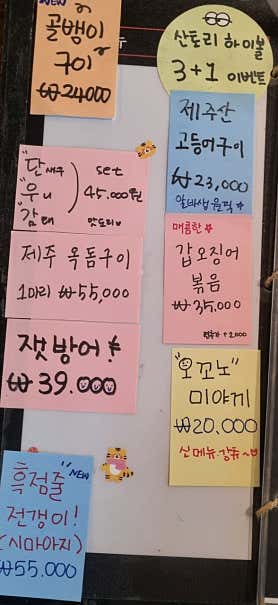 NEW
골뱅이
구이
₩24000
산토리 하이볼
3+1 이벤트
제주산
고등어구이
₩23,000
알바생 원픽
"단새우
우니
감태"
set
45.000원
맛도리
매콤한
갑오징어
볶음
₩35,000
면추가 +2,000
제주 옥돔구이
1마리 ₩55,000
잿방어!
₩39.000
"오꼬노"
미야끼
₩20,000
신메뉴 강츄~
흑점줄
NEW
전갱이!
(시마아지)
₩55.000